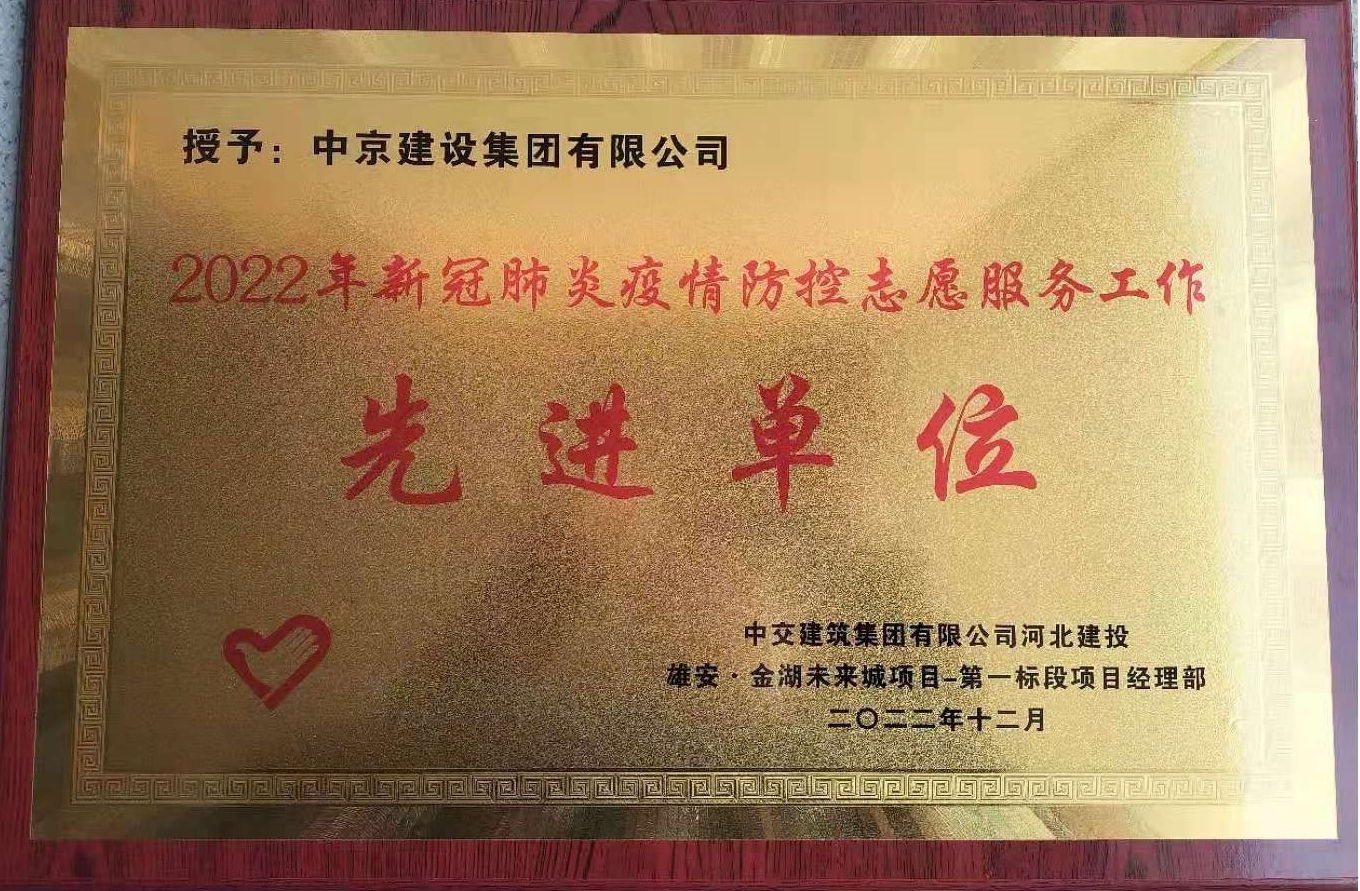 授予：中京建设集团有限公司
2022年新冠肺炎疫情防控志愿服务工作
先进单位
中交建筑集团有限公司河北建投
雄安·金湖未来城项目-第一标段项目经理部
二〇二二年十二月